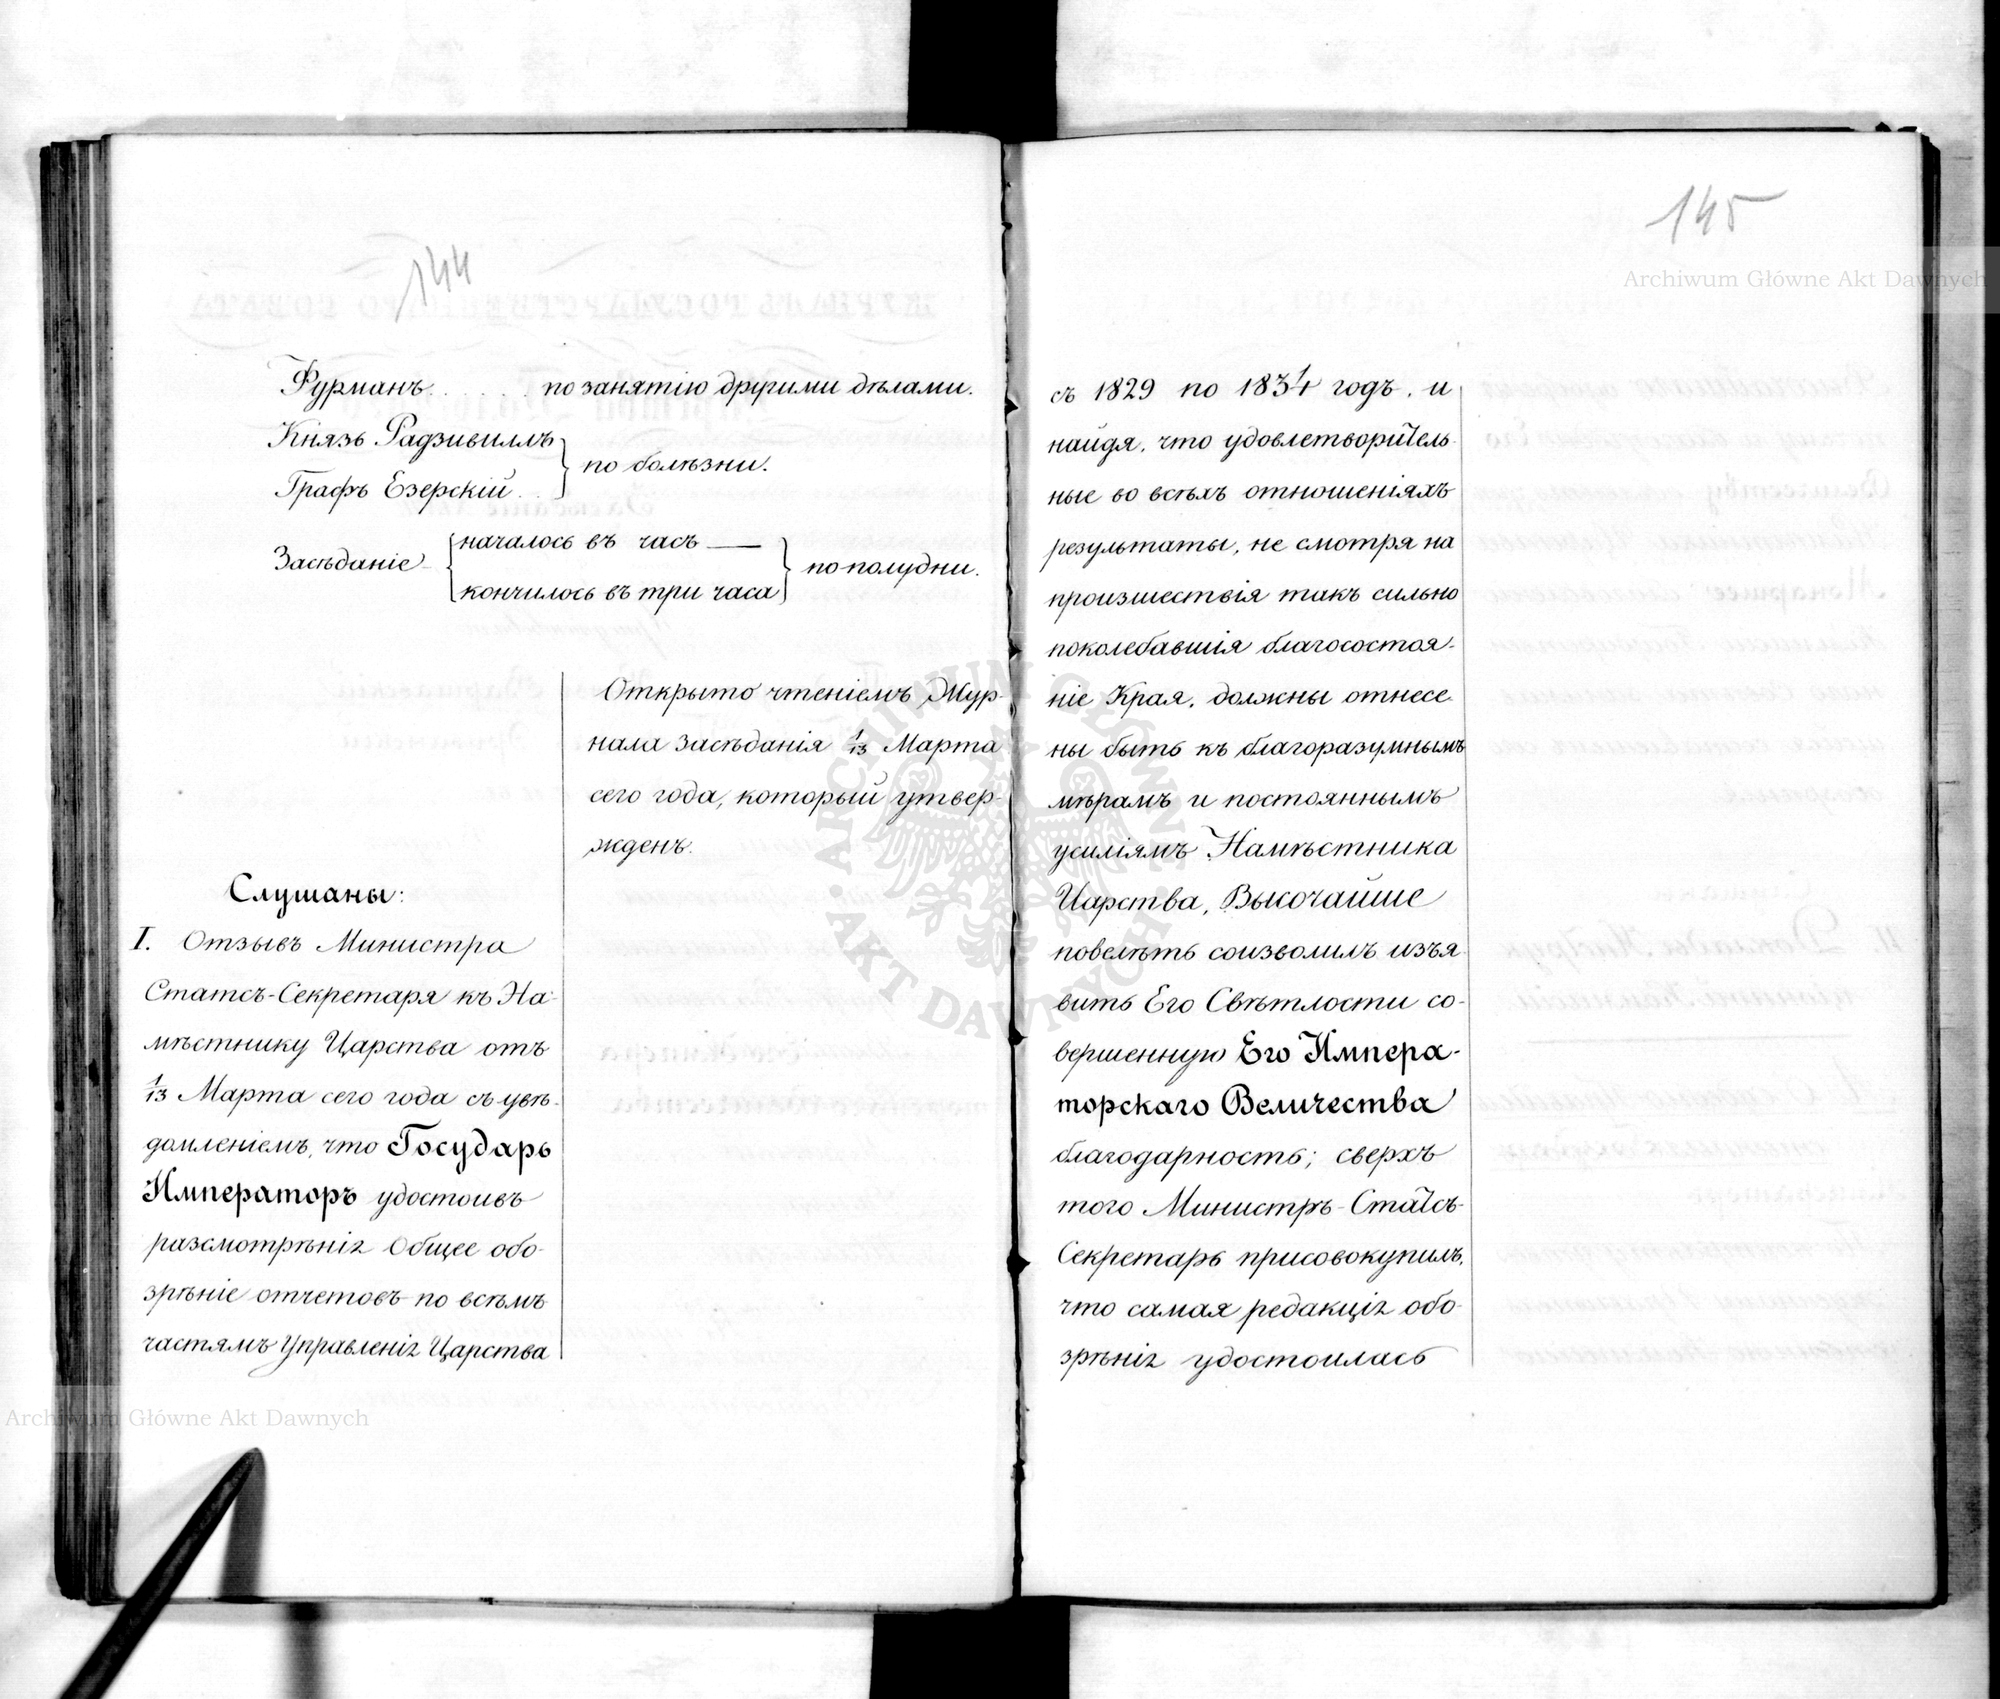 144
Фурманъ . . . . . . по занятію другими дѣлами.
Князь Радзивиллъ
Графъ Езерскій . .
по болѣзни.
Засѣданіе
началось въ часъ —
кончилось въ три часа
по полудни.
Открыто чтеніемъ Жур-
нала Засѣданія 1/13 Марта
сего года, который утвер-
жденъ.
Слушаны:
I. Отзывъ Министра
Статсъ-Секретаря къ На-
мѣстнику Царства отъ
1/13 Марта сего года съ увѣ-
домленіемъ, что Государь
Императоръ удостоивъ
разсмотрѣнія Общее обо-
зрѣніе отчетовъ по всѣмъ
частямъ Управленія Царства
145
съ 1829 по 1834 годъ, и
найдя, что удовлетворитель-
ные во всѣхъ отношеніяхъ
результаты, не смотря на
произшествія такъ сильно
поколебавшія благосостоя-
ніе Края, должны отнесе-
ны быть къ благоразумнымъ
мѣрамъ и постояннымъ
усиліямъ Намѣстника
Царства, Высочайше
повелѣть соизволилъ изъя-
вить Его Свѣтлости со-
вершенную Его Импера-
торскаго Величества
благодарность; сверхъ
того Министръ-Статсъ-
Секретарь присовокупилъ,
что самая редакція обо-
зрѣнія удостоилась
Archiwum Główne Akt Dawnych
Archiwum Główne Akt Dawnych
ARCHIWUM GŁÓWNE • AKT DAWNYCH •